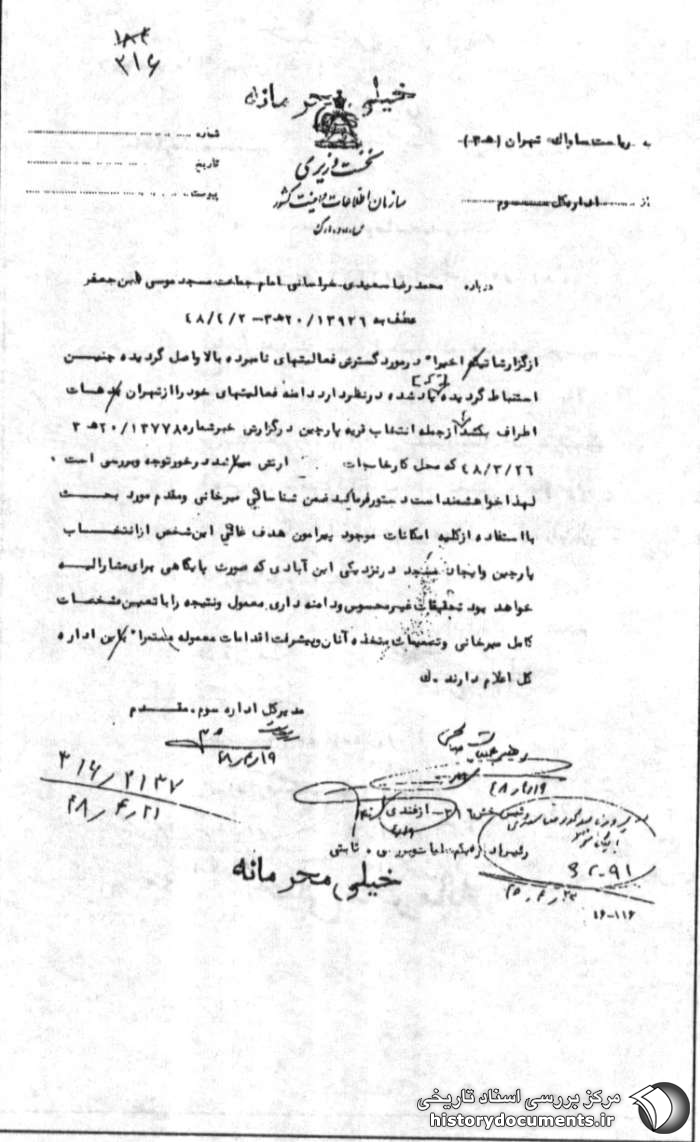 ۳۱۶
خیلی محرمانه
به ریاست ساواک تهران (ه‍ ۳)
شماره
نخست وزیری
تاریخ
از اداره کل سوم
سازمان اطلاعات و امنیت کشور
پیوست
س.ا.و.ا.ک
درباره محمد رضا سعیدی خراسانی امام جماعت مسجد موسی ابن جعفر
عطف به ۲۰/۱۳۹۲۶ ه‍ ۳ - ۴۸/۴/۲
از گزارشات اخیرا" در مورد گسترش فعالیتهای نامبرده بالا واصل گردیده چنین
استنباط گردیده یاد شده در نظر دارد دامنه فعالیتهای خود را از تهران به دهات
اطراف بکشد از جمله انتخاب قریه پارچین در گزارش خبر شماره ۲۰/۱۳۷۷۸ ه‍ ۳
۴۸/۳/۲۶ که محل کارخانجات ارتش میباشد در خور توجه و بررسی است .
لهذا خواهشمند است دستور فرمائید ضمن شناسائی میرخانی و مقدم مورد بحث
با استفاده از کلیه امکانات موجود پیرامون هدف غائی این شخص از انتخاب
پارچین و ایجاد مسجد در نزدیکی این آبادی که بصورت پایگاهی برای مشارالیه
خواهد بود تحقیقات غیر محسوس و دامنه داری معمول و نتیجه را با تعیین مشخصات
کامل میرخانی و تصمیمات متخذه آنان و پیشرفت اقدامات معموله مستمرا" باین اداره
کل اعلام دارند . ک
مدیر کل اداره سوم . مقدم
۴۸/۴/۱۹
رهبر عملیات
۴۸/۴/۱۹
۳۱۶/۲۱۳۷
۴۸/۴/۲۱
رئیس بخش ۳۱۶ - ازغندی
رئیس اداره یکم عملیات و بررسی . ثابتی
خیلی محرمانه
۱۶-۱۱۶
مرکز بررسی اسناد تاریخی
historydocuments.ir